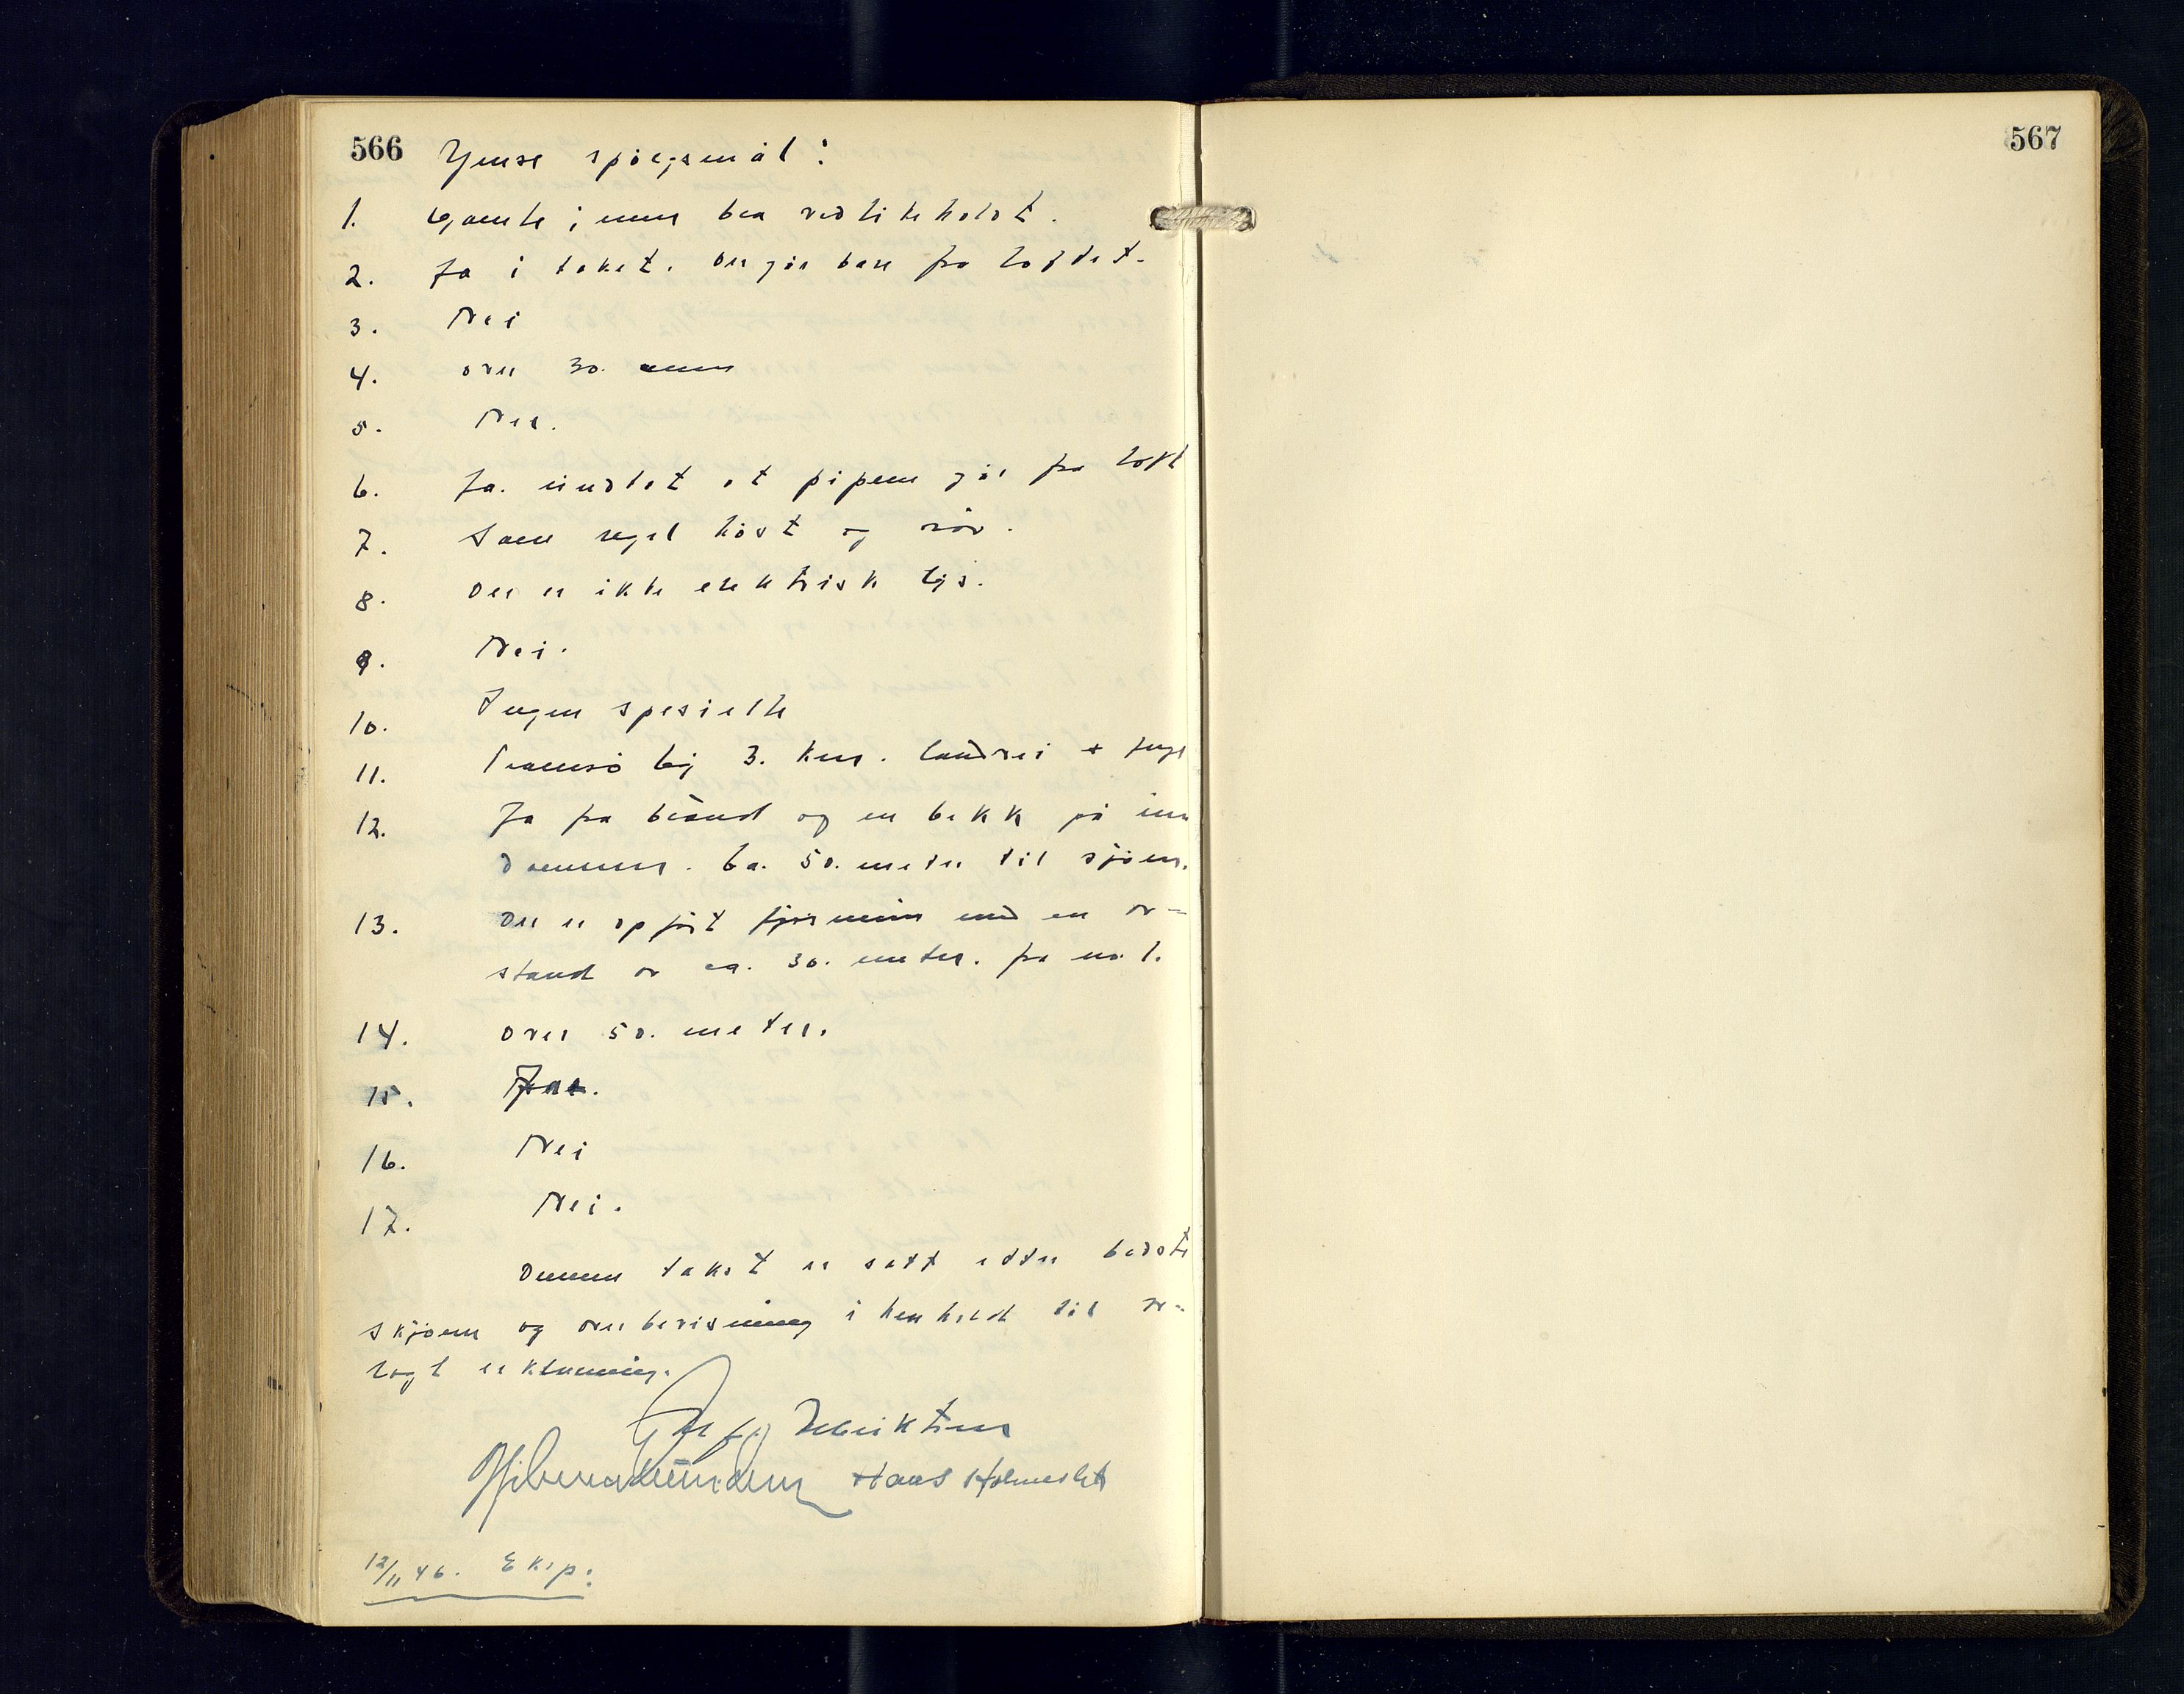 566
567
Ymse spörgsmål:
1. Gamle; men bra vedlikeholdt.
2. Ja i taket. Den går bare fra loftet.
3. Nei
4. over 30. mm
5. Nei.
6. Ja. undtat at pipen går fra loft
7. Som regel höst og vår.
8. Der er ikke elektrisk lys.
9. Nei.
10. Ingen spesielle
11. Tromsö by 3. km. landvei +
12. Ja fra brönd og en bekk på
dommen. ca. 50. meter til sjöen.
13. Der er opfört med en av-
stand av ca. 30. meter. fra no. 1.
14. over 50. meter.
15.
16. Nei
17. Nei.
Denne takst er satt etter bedste
skjönn og overbevisning i henhold til av-
lagt erklæring.
Hans Holmeslet
12/11 46. Eksp: